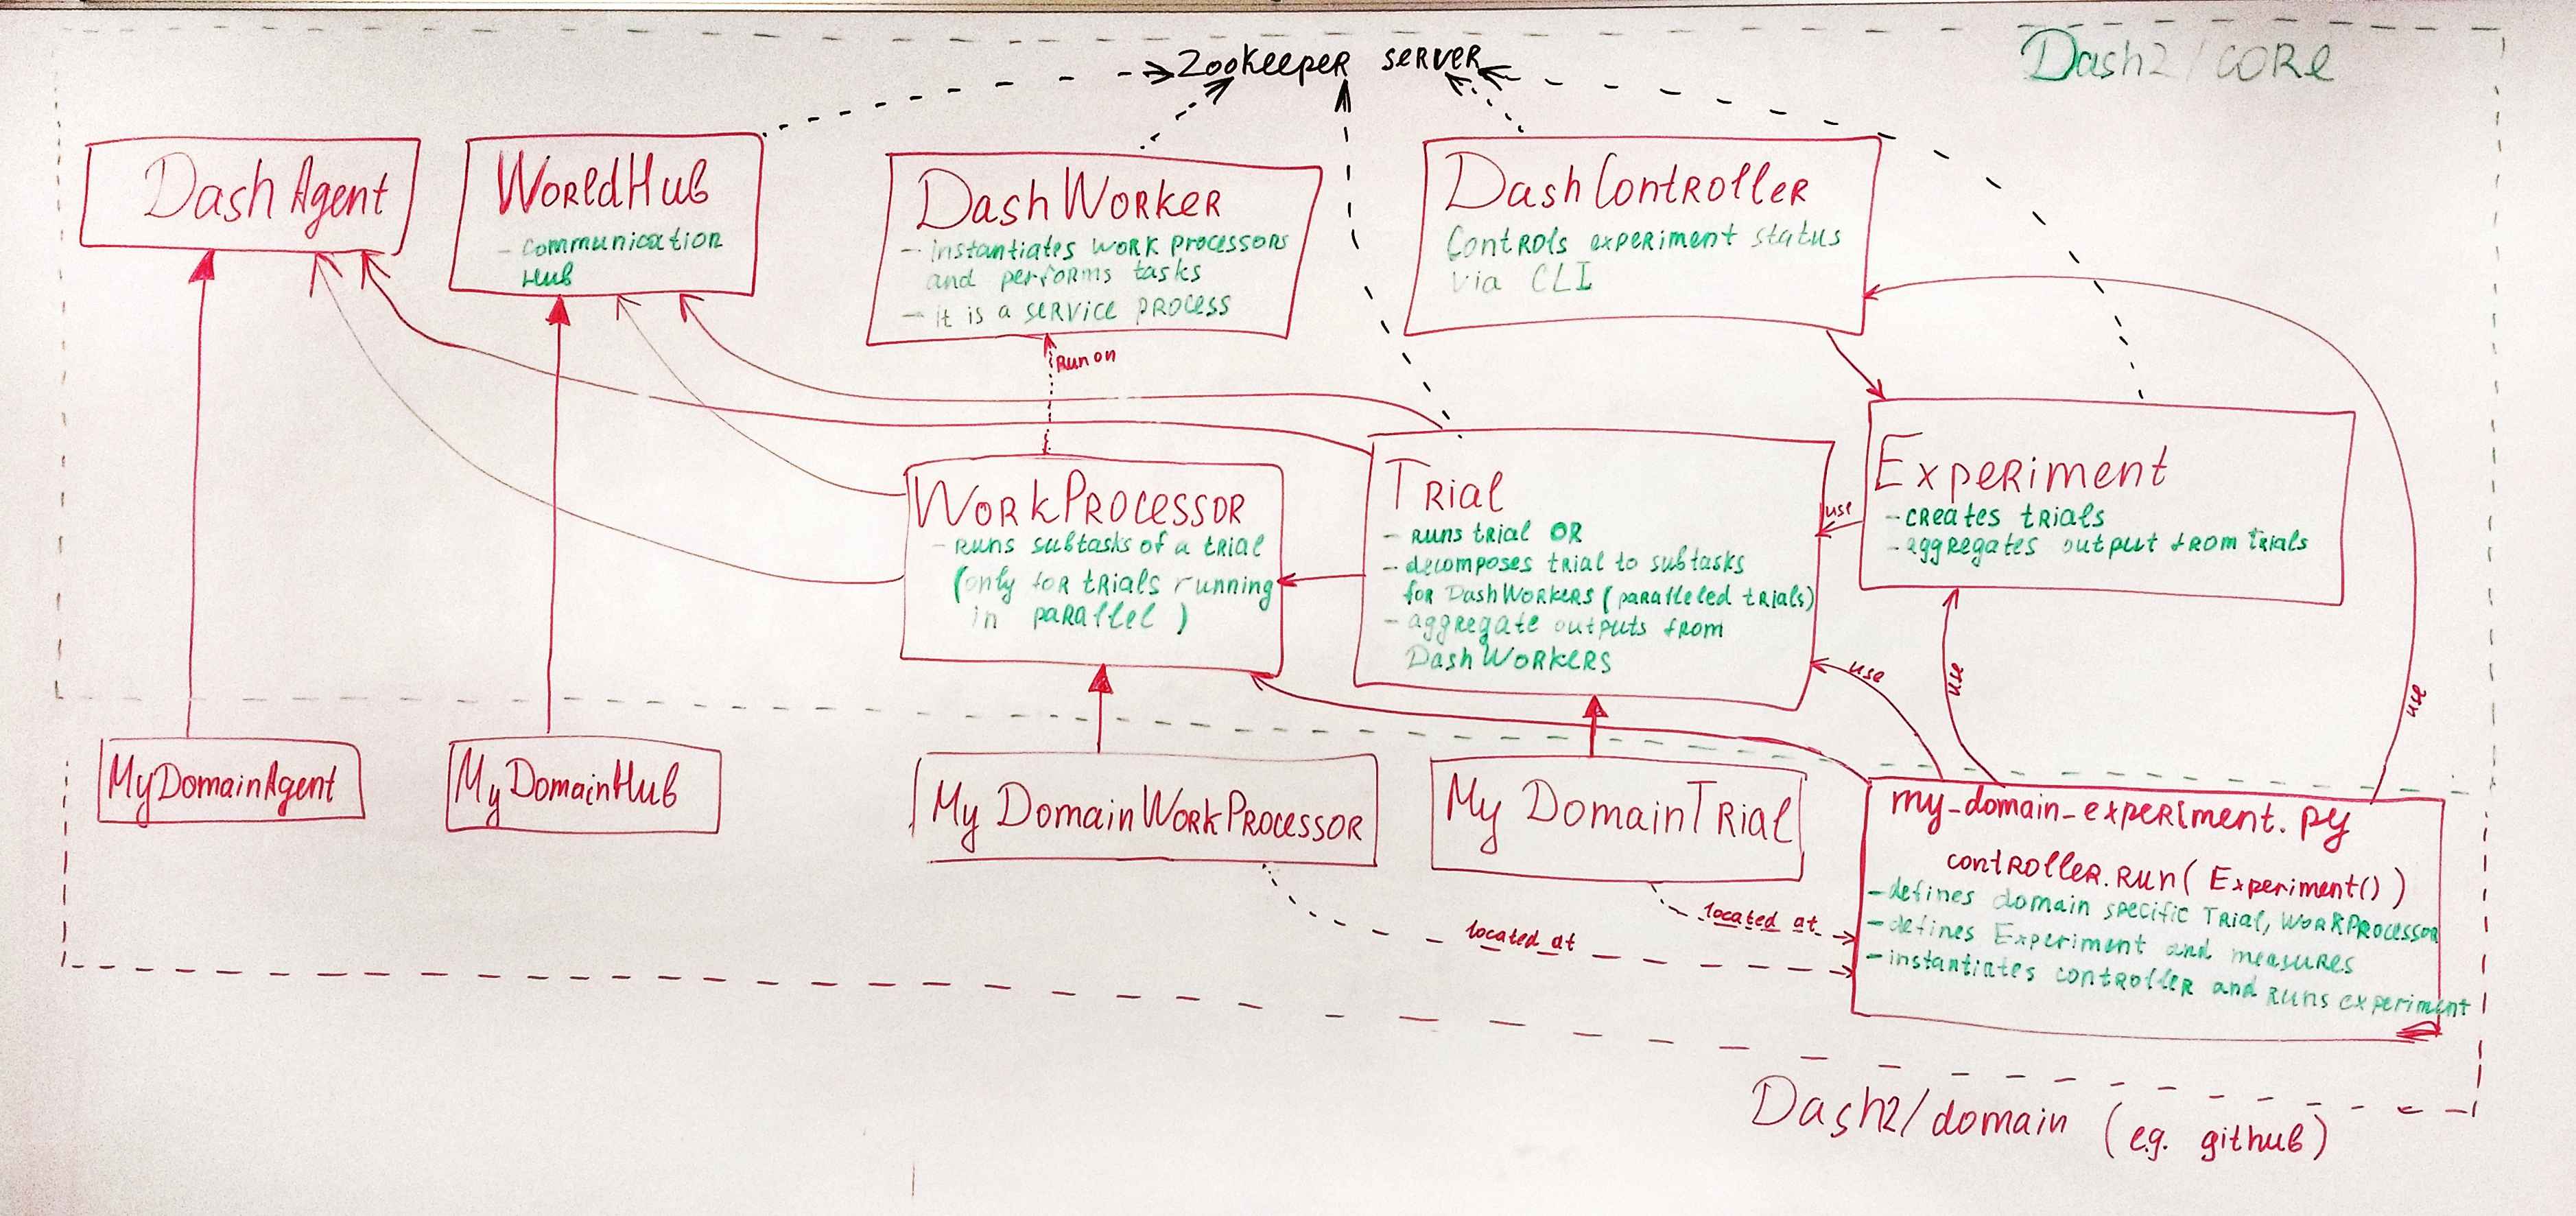 Zookeeper server
Dash2/core
DashAgent
WorldHub
- communication
Hub
DashWorker
- instantiates work processors
and performs tasks
- it is a service process
DashController
Controls experiment status
via CLI
Run on
WorkProcessor
- runs subtasks of a trial
(only for trials running
in parallel)
Trial
- runs trial OR
- decomposes trial to subtasks
for DashWorkers (paralleled trials)
- aggregate outputs from
DashWorkers
use
Experiment
- creates trials
- aggregates output from trials
use
use
use
MyDomainAgent
MyDomainHub
My DomainWorkProcessor
My DomainTrial
my_domain_experiment.py
controller.run( Experiment() )
- defines domain specific Trial, WorkProcessor
- defines Experiment and measures
- instantiates controller and runs experiment
located at
located at
Dash2/domain (e.g. github)